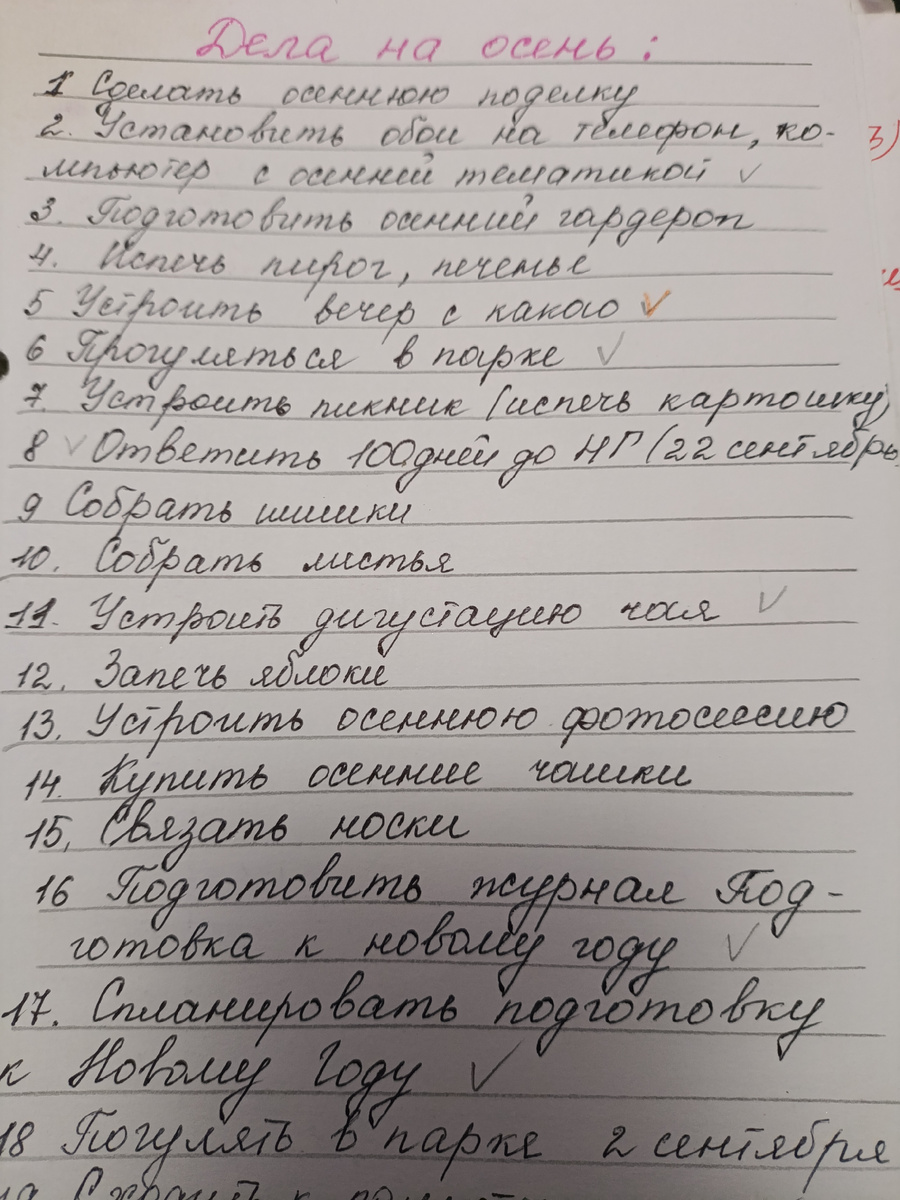 Дела на осень:
1 Сделать осеннюю поделку
2. Установить обои на телефон, ко-
мпьютер с осенней тематикой ✓
3. Подготовить осенний гардероп
4. Испечь пирог, печенье
5 Устроить вечер с какао ✓
6 Прогуляться в парке ✓
7. Устроить пикник (испечь картошку)
8 ✓ Ответить 100дней до НГ (22 сентябрь
9 Собрать шишки
10. Собрать листья
11. Устроить дигустацию чая ✓
12. Запечь яблоки
13. Устроить осеннюю фотосессию
14. Купить осенние чашки
15, Связать носки
16 Подготовить журнал Под-
готовка к новому году ✓
17. Спланировать подготовку
к Новому Году ✓
18 Погулять в парке 2 сентября